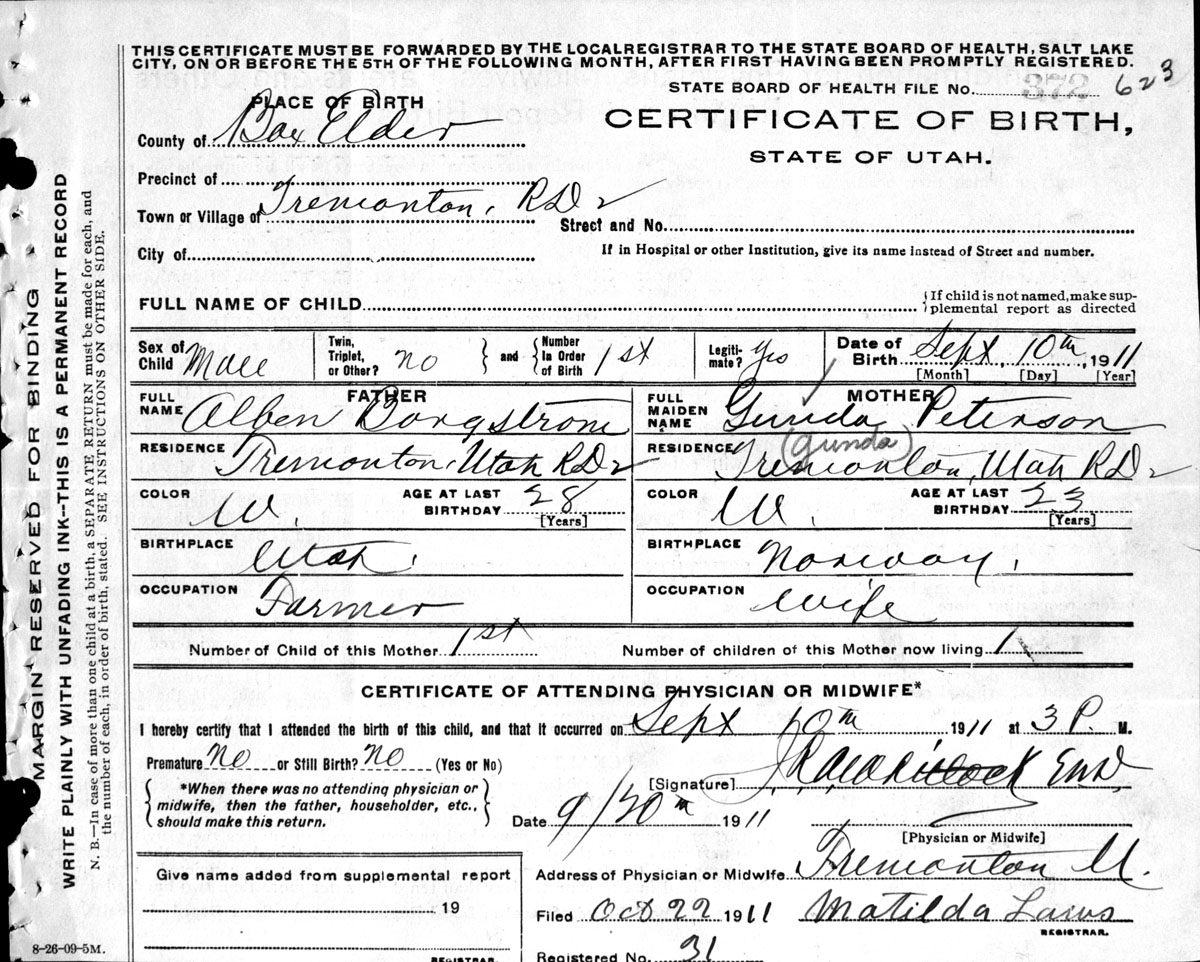 THIS CERTIFICATE MUST BE FORWARDED BY THE LOCAL REGISTRAR TO THE STATE BOARD OF HEALTH, SALT LAKE
CITY, ON OR BEFORE THE 5TH OF THE FOLLOWING MONTH, AFTER FIRST HAVING BEEN PROMPTLY REGISTERED.
STATE BOARD OF HEALTH FILE No. 372 623
PLACE OF BIRTH
CERTIFICATE OF BIRTH,
STATE OF UTAH.
County of Box Elder
Precinct of
Town or Village of Tremonton, RD2
Street and No.
City of
If in Hospital or other Institution, give its name instead of Street and number.
FULL NAME OF CHILD
{If child is not named, make sup-
plemental report as directed
Sex of Child Male
Twin, Triplet, or Other? no } and { Number In Order of Birth 1st
Legiti-mate? Yes
Date of Birth Sept 10th, 1911
[Month] [Day] [Year]
FATHER
FULL NAME Alben Borgstrom
RESIDENCE Tremonton, Utah RD2
COLOR W.
AGE AT LAST BIRTHDAY 28
[Years]
BIRTHPLACE Utah.
OCCUPATION Farmer
MOTHER
FULL MAIDEN NAME Gunda Peterson
(Gunda)
RESIDENCE Tremonton, Utah RD2
COLOR W.
AGE AT LAST BIRTHDAY 23
[Years]
BIRTHPLACE Norway.
OCCUPATION Wife
Number of Child of this Mother 1st
Number of children of this Mother now living 1
CERTIFICATE OF ATTENDING PHYSICIAN OR MIDWIFE*
I hereby certify that I attended the birth of this child, and that it occurred on Sept 10th 1911 at 3 P. M.
Premature No or Still Birth? No (Yes or No)
[Signature]
{ *When there was no attending physician or
midwife, then the father, householder, etc.,
should make this return. }
Date 9/30th 1911
[Physician or Midwife]
Give name added from supplemental report
19
REGISTRAR
Address of Physician or Midwife Tremonton U.
Filed Oct 22 1911 Matilda
REGISTRAR.
Registered No. 31
8-26-09-5M.
MARGIN RESERVED FOR BINDING
WRITE PLAINLY WITH UNFADING INK—THIS IS A PERMANENT RECORD
N. B.—In case of more than one child at a birth, a SEPARATE RETURN must be made for each, and
the number of each, in order of birth, stated. SEE INSTRUCTIONS ON OTHER SIDE.